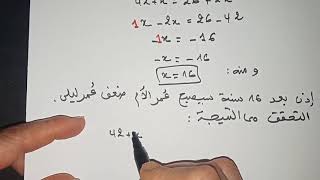 42+x = 26+2x
1x - 2x = 26 - 42
-1x = -16
-x = -16
ومنه : x = 16
إذن بعد 16 سنة سيصبح عمر الأم ضعف عمر ليلى.
التحقق من النتيجة :
42+x